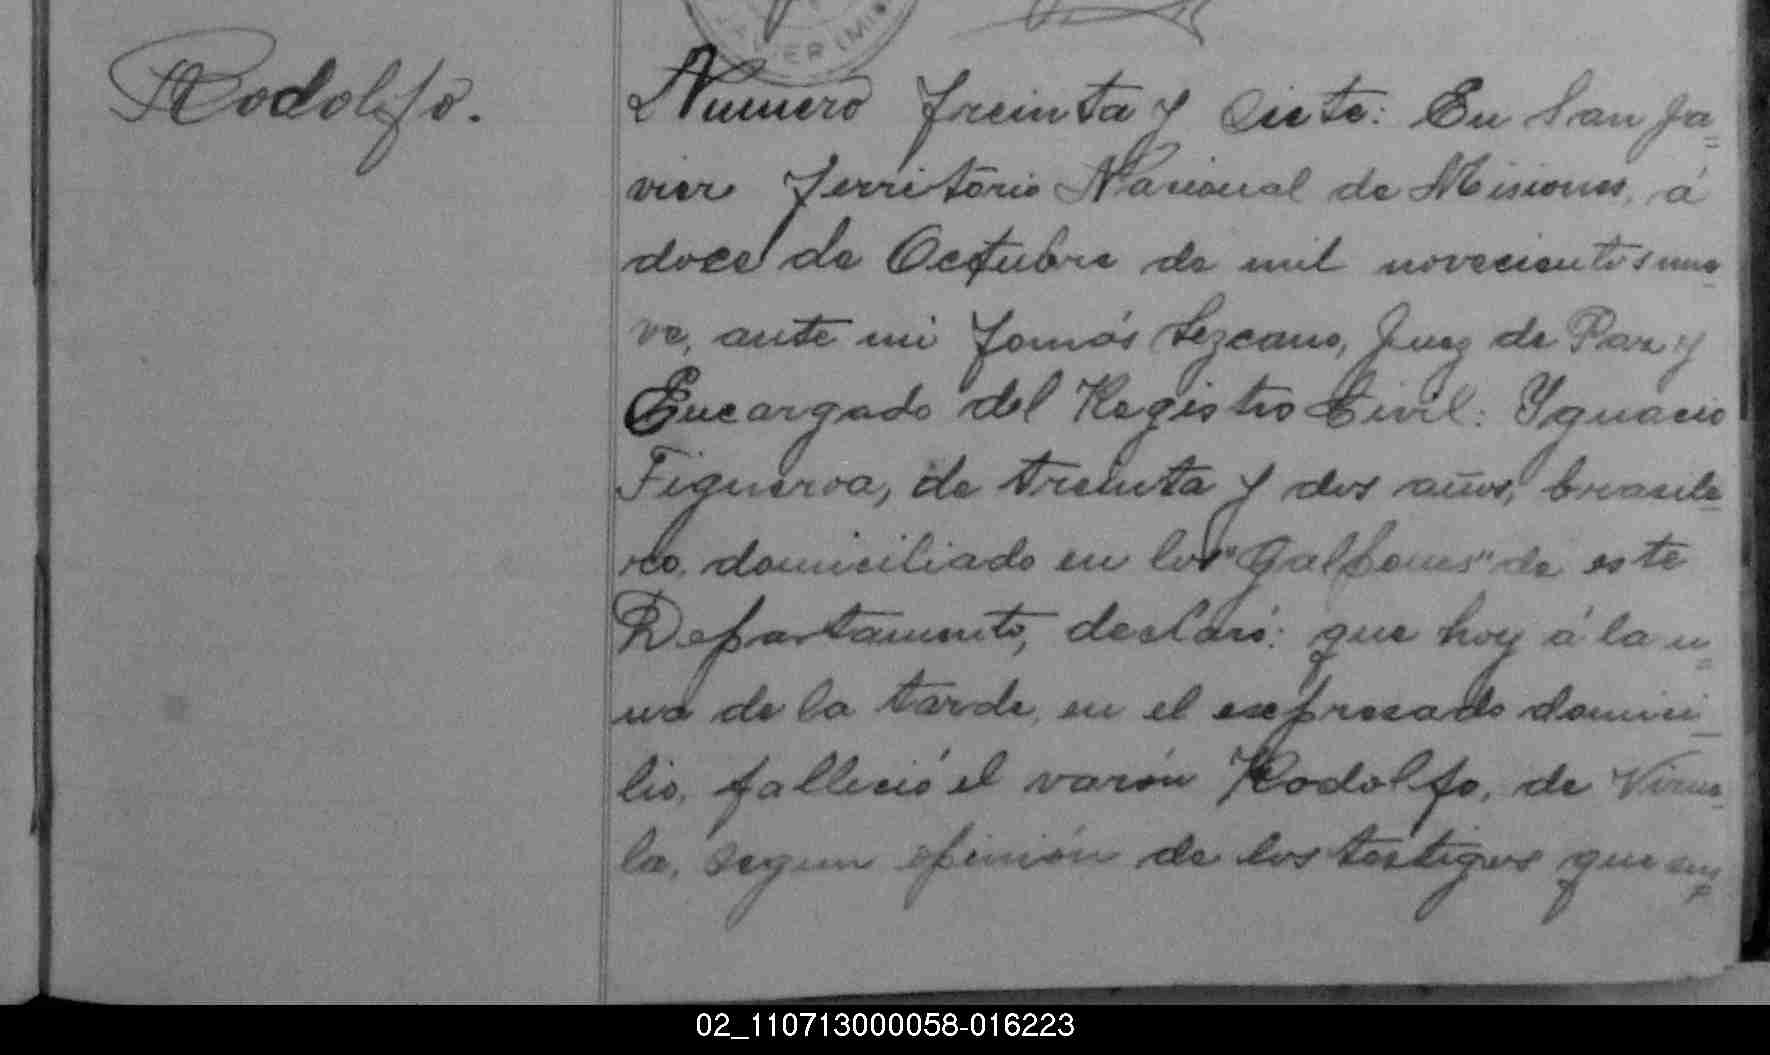 Rodolfo.
Numero treinta y siete: En San Ja=
vier Territorio Nacional de Misiones, á
doce de Octubre de mil novecientos nue=
ve, ante mi Tomás Lezcano, Juez de Paz y
Encargado del Registro Civil: Ygnacio
Figueroa, de treinta y dos años, brasile=
ro, domiciliado en los "Galpones" de este
Departamento, declaró: que hoy á la u=
na de la tarde, en el expresado domici=
lio, falleció el varón Rodolfo, de Virue=
la, segun opinión de los testigos que sus
02_110713000058-016223